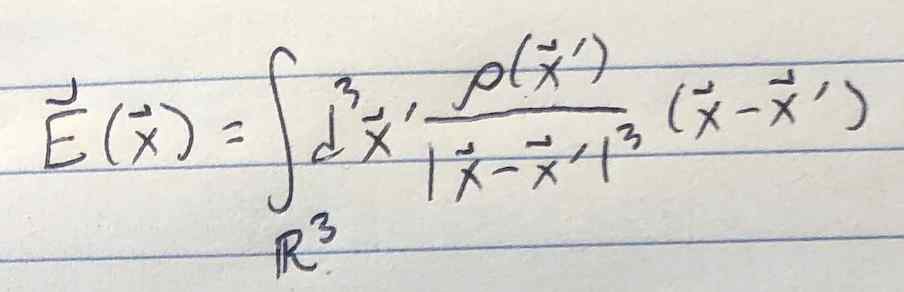 $$\vec{E}(\vec{x}) = \int_{\mathbb{R}^3} d^3\vec{x}' \frac{\rho(\vec{x}')}{|\vec{x}-\vec{x}'|^3} (\vec{x}-\vec{x}')$$